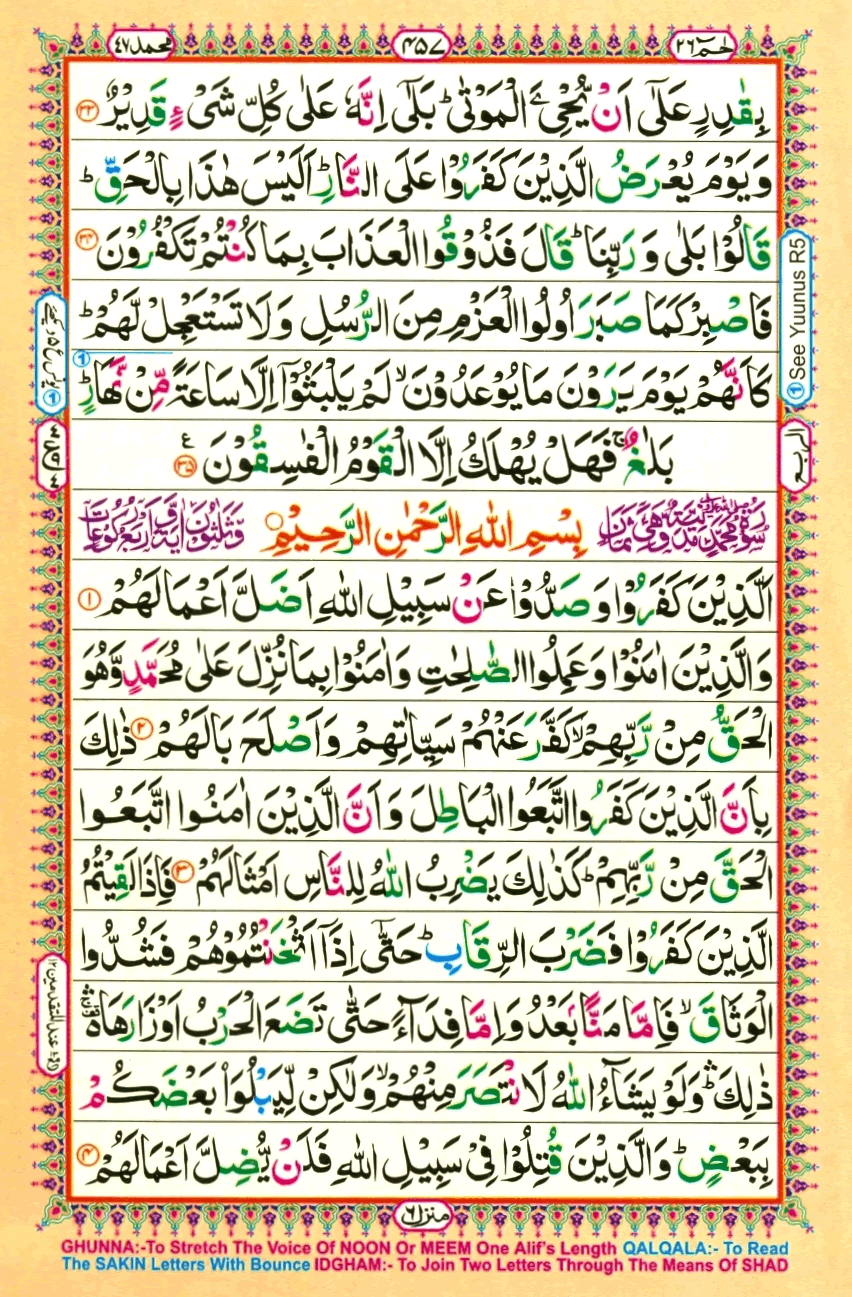 حٰمٓ ٢٦
٤٥٧
محمد ٤٧
بِقٰدِرٍ عَلٰٓی اَنْ یُّحْیِۦَ الْمَوْتٰی ؕ بَلٰۤی اِنَّهٗ عَلٰی كُلِّ شَیْءٍ قَدِیْرٌ ﴿۳۳﴾
وَ یَوْمَ یُعْرَضُ الَّذِیْنَ كَفَرُوْا عَلَی النَّارِ ؕ اَلَیْسَ هٰذَا بِالْحَقِّ ؕ
قَالُوْا بَلٰی وَ رَبِّنَا ؕ قَالَ فَذُوْقُوا الْعَذَابَ بِمَا كُنْتُمْ تَكْفُرُوْنَ ﴿۳۴﴾
فَاصْبِرْ كَمَا صَبَرَ اُولُوا الْعَزْمِ مِنَ الرُّسُلِ وَ لَا تَسْتَعْجِلْ لَّهُمْ ؕ
كَاَنَّهُمْ یَوْمَ یَرَوْنَ مَا یُوْعَدُوْنَ ۙ لَمْ یَلْبَثُوْۤا اِلَّا سَاعَةً مِّنْ نَّهَارٍ ؕ
بَلٰغٌ ۚ فَهَلْ یُهْلَكُ اِلَّا الْقَوْمُ الْفٰسِقُوْنَ ﴿۳۵﴾ ع
See Yuunus R5
الربع
بِسْمِ اللّٰهِ الرَّحْمٰنِ الرَّحِیْمِ
وَثَلٰثُوْنَ اٰیَةً وَّاَرْبَعُ رُكُوْعَاتٍ
اَلَّذِیْنَ كَفَرُوْا وَ صَدُّوْا عَنْ سَبِیْلِ اللّٰهِ اَضَلَّ اَعْمَالَهُمْ ﴿۱﴾
وَ الَّذِیْنَ اٰمَنُوْا وَ عَمِلُوا الصّٰلِحٰتِ وَ اٰمَنُوْا بِمَا نُزِّلَ عَلٰی مُحَمَّدٍ وَّ هُوَ
الْحَقُّ مِنْ رَّبِّهِمْ ۙ كَفَّرَ عَنْهُمْ سَیِّاٰتِهِمْ وَ اَصْلَحَ بَالَهُمْ ﴿۲﴾ ذٰلِكَ
بِاَنَّ الَّذِیْنَ كَفَرُوا اتَّبَعُوا الْبَاطِلَ وَ اَنَّ الَّذِیْنَ اٰمَنُوا اتَّبَعُوا
الْحَقَّ مِنْ رَّبِّهِمْ ؕ كَذٰلِكَ یَضْرِبُ اللّٰهُ لِلنَّاسِ اَمْثَالَهُمْ ﴿۳﴾ فَاِذَا لَقِیْتُمُ
الَّذِیْنَ كَفَرُوْا فَضَرْبَ الرِّقَابِ ؕ حَتّٰۤی اِذَاۤ اَثْخَنْتُمُوْهُمْ فَشُدُّوا
الْوَثَاقَ ۙ فَاِمَّا مَنًّۢا بَعْدُ وَ اِمَّا فِدَآءً حَتّٰی تَضَعَ الْحَرْبُ اَوْزَارَهَا
ذٰلِكَ ۛؕ وَ لَوْ یَشَآءُ اللّٰهُ لَانْتَصَرَ مِنْهُمْ ۙ وَ لٰكِنْ لِّیَبْلُوَا۠ بَعْضَكُمْ
بِبَعْضٍ ؕ وَ الَّذِیْنَ قُتِلُوْا فِیْ سَبِیْلِ اللّٰهِ فَلَنْ یُّضِلَّ اَعْمَالَهُمْ ﴿۴﴾
منزل ٦
GHUNNA:-To Stretch The Voice Of NOON Or MEEM One Alif's Length QALQALA:- To Read
The SAKIN Letters With Bounce IDGHAM:- To Join Two Letters Through The Means Of SHAD